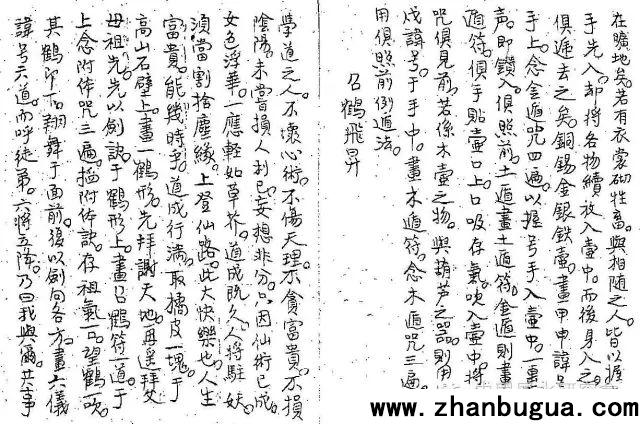 在曠地矣若有衣裳砌牲畜與相随之人皆以握
手先入却將各物續放入壺中而後身入之
俱遁去之矣銅錫金銀鉄壺畫甲申諱号
手上念金遁咒四遍以握号手入壺中一重
声即鑽入俱照前土遁畫土遁符金遁則畫
遁符俱手貼壺口上口吸存氣吹入壺中將
咒俱見前若係木壺之物與葫芦之器則用
戊諱号于手中畫木遁符念木遁咒三遍
用俱照前例遁法
召鶴飛昇
學道之人不壞心術不傷天理不貪富貴不損
陰陽未嘗損人利己妄想非分只因仙術已成
女色浮華一應輕如草芥道成既久人將駐妖
須當割捨塵緣上登仙路此大快樂也人生
富貴能幾時乎道成行滿取橘皮一塊于
高山石壁上畫一鶴形先拜謝天地再遙拜父
母祖先先以劍訣于鶴形上畫召鶴符一道于
上念附体咒三遍搯附体訣存祖氣一口望鶴一吹
其鶴即下翔舞于面前後以劍向各方畫六儀
諱号六道而呼徒弟六將立降乃曰我與爾共事
www.zhanbugua.com